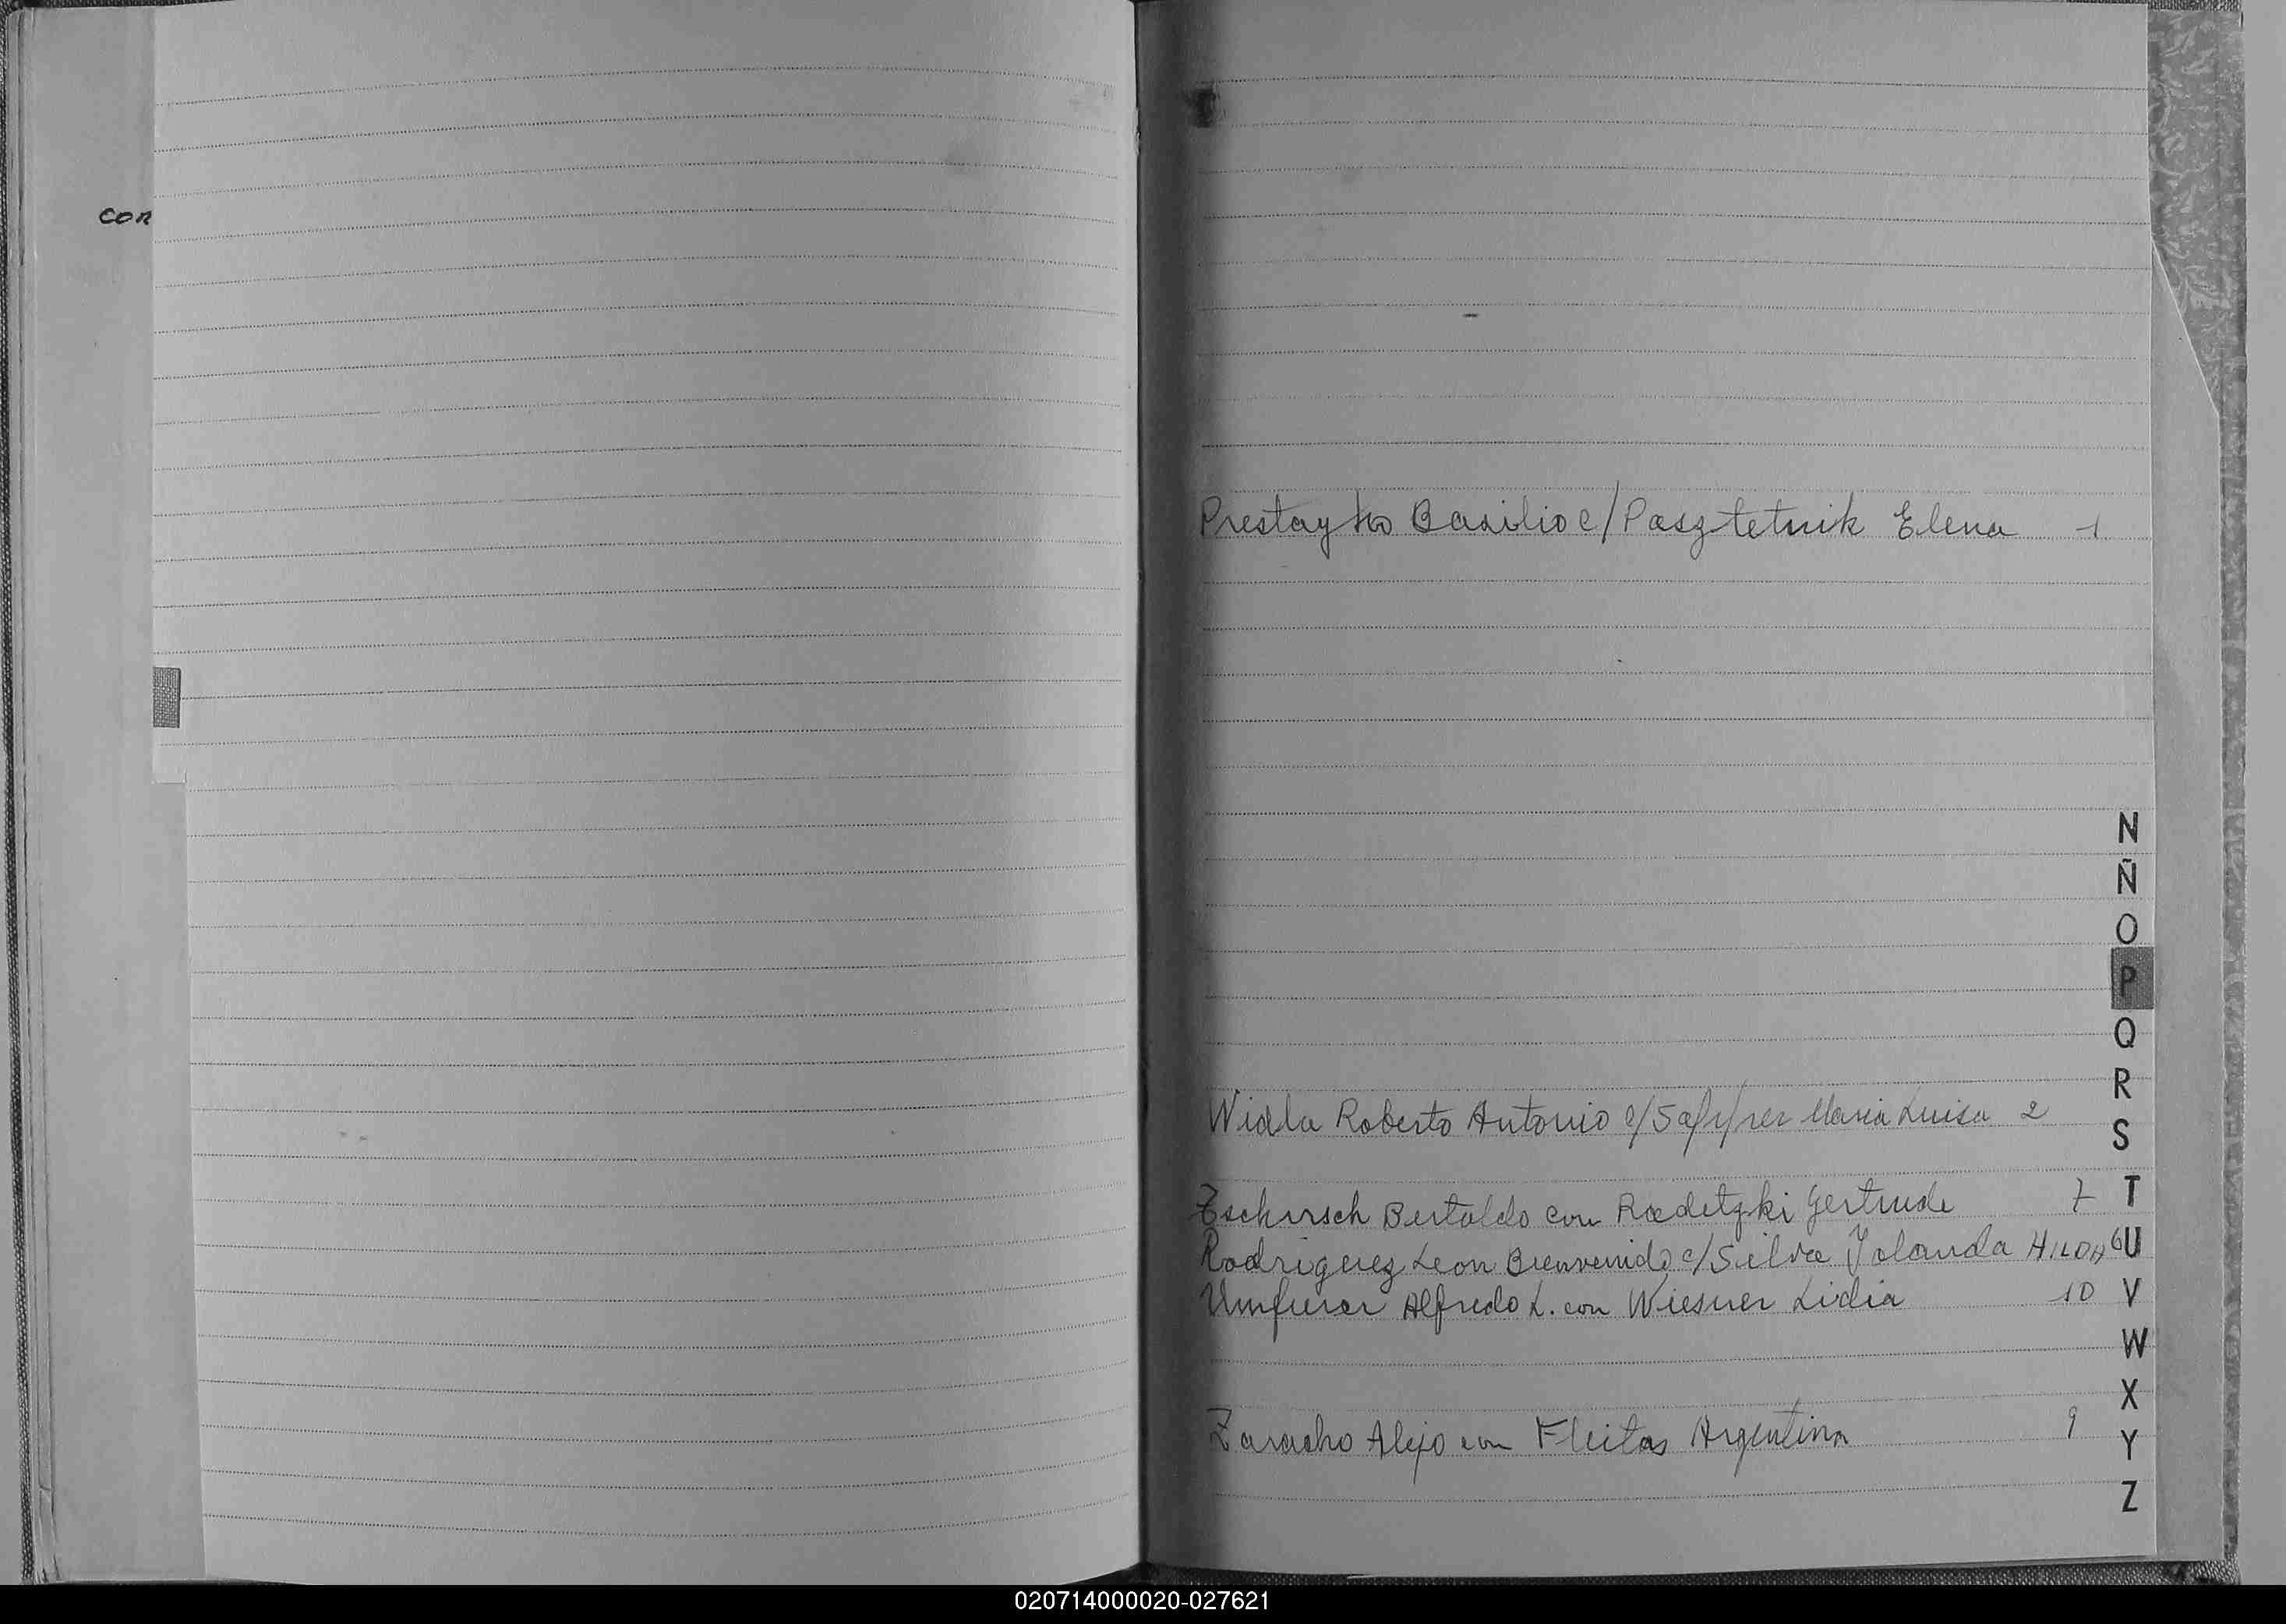 con
Prestayko Basilio c/Pasztetnik Elena 1
N
Ñ
O
P
Q
R
Widla Roberto Antonio c/ Maria Luisa 2
S
Zschirsch Bertoldo con Radetzki Gertrude 7
T
Rodriguez Leon Bienvenido c/Silva Yolanda HILDA 6
U
Umfurer Alfredo L. con Wiesner Lidia 10
V
W
X
Zaracho Alejo con Fleitas Argentina 9
Y
Z
020714000020-027621